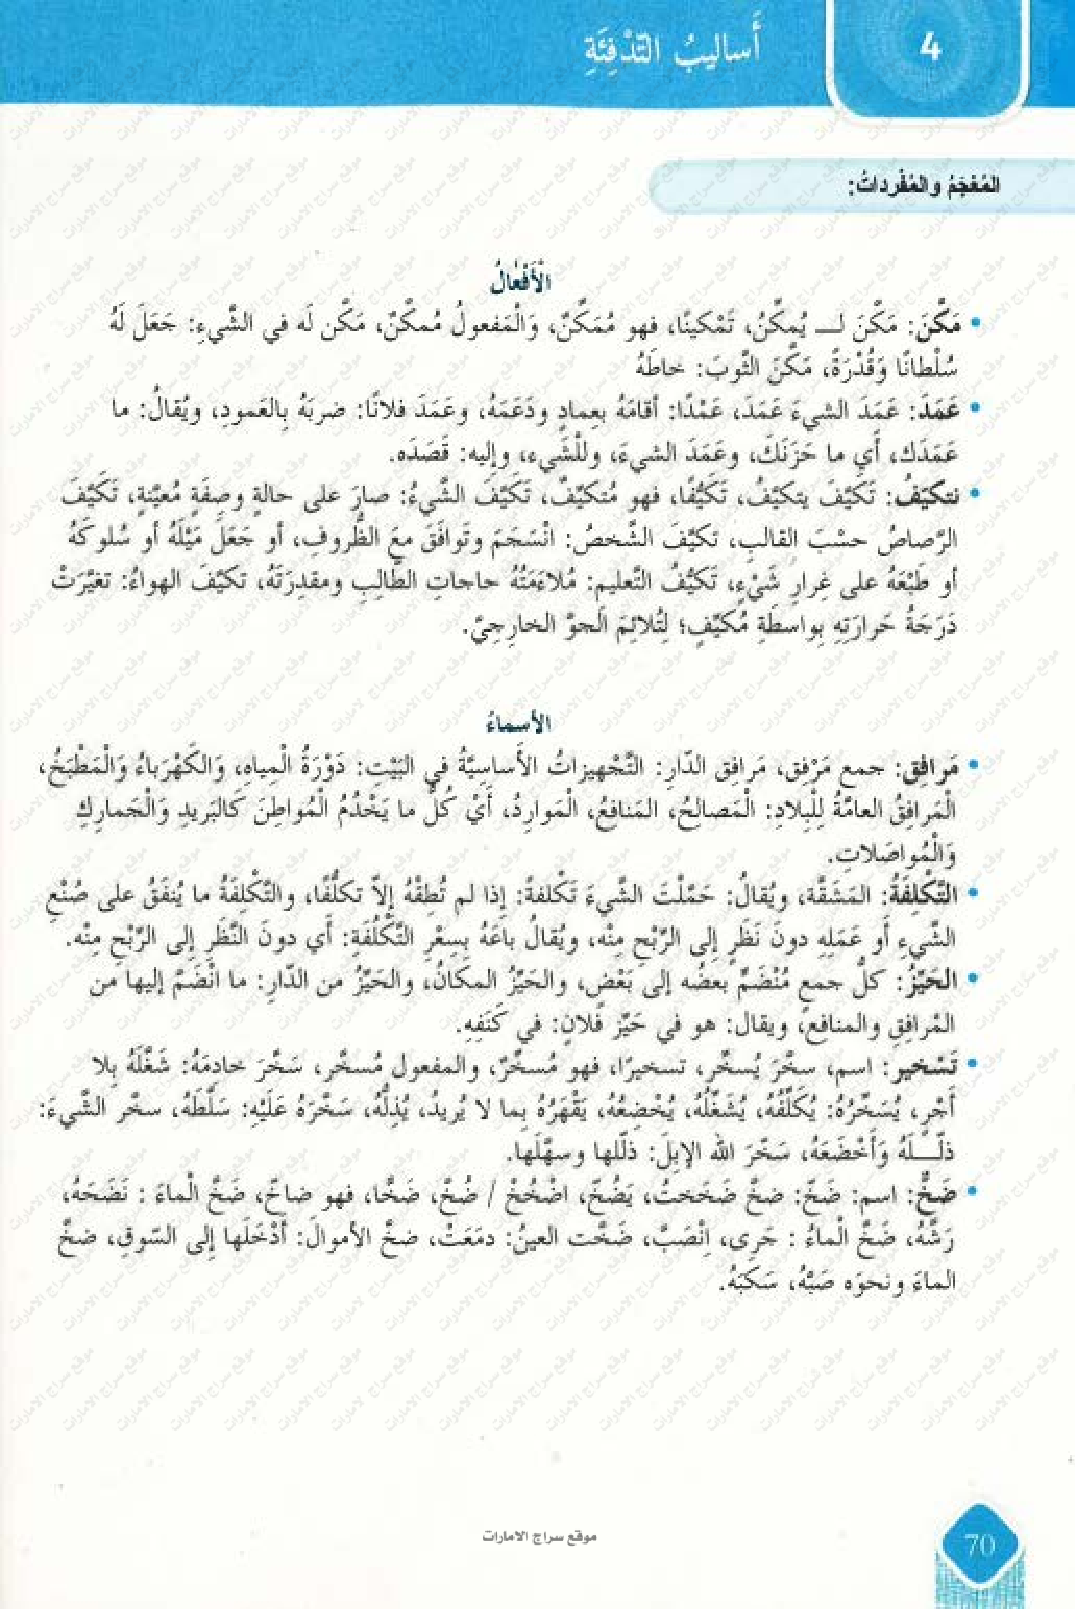 4
أَساليبُ التَّدْفِئَةِ
المُعْجَمُ والمُفْرداتُ:
الْأَفْعالُ
• مَكَّنَ: مَكَّنَ لــ يُمكِّنُ، تَمْكينًا، فهو مُمَكِّنٌ، وَالْمَفعولُ مُمكَّنٌ، مَكَّن لَه في الشَّيءِ: جَعَلَ لَهُ
سُلْطانًا وَقُدْرَةً، مَكَّنَ الثَّوبَ: خاطَهُ
• عَمَدَ: عَمَدَ الشيءَ عَمَدَ، عَمْدًا: أقامَهُ بعِمادٍ ودَعَمَهُ، وعَمَدَ فلانًا: ضربَهُ بالعَمودِ، ويُقالُ: ما
عَمَدَك، أَي ما حَزَنَكَ، وعَمَدَ الشيءَ، وللْشَيء، وإليه: قَصَدَه.
• نتكيّفُ: تَكَيَّفَ يتكيّفُ، تَكَيُّفًا، فهو مُتكيِّفٌ، تَكَيَّفَ الشَّيءُ: صارَ على حالةٍ وصِفَةٍ مُعيّنةٍ، تَكَيَّفَ
الرَّصاصُ حسْبَ القالبِ، تكيَّفَ الشَّخصُ: انْسَجَمَ وتَوافَقَ معَ الظُّروفِ، أو جَعَلَ مَيْلَهُ أو سُلوكَهُ
أو طَبْعَهُ على غِرارِ شَيْءٍ، تَكَيُّفُ التَّعليمِ: مُلاءَمَتُهُ حاجاتِ الطّالِبِ ومقدِرَتَهُ، تكيَّفَ الهواءُ: تغيَّرَتْ
دَرَجَةُ حَرارَتِهِ بِواسطَةِ مُكيِّفٍ؛ لِتُلائِمَ الجوَّ الخارجيَّ.
الأسماءُ
• مَرافِق: جمع مَرْفِق، مَرافِق الدّارِ: التَّجْهيزاتُ الأَساسِيَّةُ في البَيْتِ: دَوْرَةُ الْمِياهِ، وَالكَهْرَباءُ وَالْمَطْبَخُ،
الْمَرافِقُ العامَّةُ لِلْبِلادِ: الْمَصالِحُ، المَنافِعُ، الْمَوارِدُ، أَيْ كُلُّ ما يَخْدُمُ الْمُواطِنَ كَالبَريدِ وَالْجَمارِكِ
وَالْمُواصَلاتِ.
• التَّكْلِفَةُ: المَشَقَّة، ويُقالُ: حَمَّلْتَ الشَّيءَ تَكْلفةً: إذا لم تُطِقْهُ إلاّ تكلُّفًا، والتَّكْلِفَةُ ما يُنفَقُ على صُنْعِ
الشَّيءِ أو عَمَلِهِ دونَ نَظَرٍ إلى الرِّبْحِ مِنْه، ويُقالُ باعَهُ بِسِعْرِ التَّكْلُفَةِ: أَي دونَ النَّظَرِ إلى الرِّبْحِ مِنْه.
• الحَيِّزُ: كلُّ جمعٍ مُنْضَمٍّ بعضُه إلى بَعْضٍ، والحَيِّزُ المكانُ، والحَيِّزُ من الدّارِ: ما انْضَمَّ إليها من
المْرافِقِ والمنافعِ، ويقال: هو في حَيِّز فلانٍ: في كَنَفِهِ.
• تَسْخير: اسم، سخَّرَ يُسخِّر، تسخيرًا، فهو مُسخِّرٌ، والمفعول مُسخَّر، سَخَّرَ خادمَهُ: شَغَّلَهُ بِلا
أَجْرٍ، يُسَخِّرُهُ: يُكَلِّفُهُ، يُشَغِّلُهُ، يُخْضِعُهُ، يَقْهَرُهُ بِما لا يُريدُ، يُذِلُّهُ، سَخَّرَهُ عَلَيْهِ: سَلَّطَهُ، سخّر الشَّيءَ:
ذلَّــلَهُ وَأَخْضَعَهُ، سَخَّرَ الله الإبِلَ: ذلّلها وسهَّلَها.
• ضَخٌّ: اسم: ضَخَّ: ضخَّ ضَخَختُ، يَضُخّ، اضْخُخْ / ضُخّ، ضَخًّا، فهو ضاخّ، ضَخَّ الْماءَ : نَضَحَهُ،
رَشَّهُ، ضَخَّ الْماءُ : جَرى، اِنْصَبَّ، ضَخَّت العينُ: دمَعَتْ، ضخَّ الأموالَ: أدْخَلَها إلى السّوقِ، ضخَّ
الماءَ ونحوَه صَبَّهُ، سَكَبَهُ.
موقع سراج الامارات
70